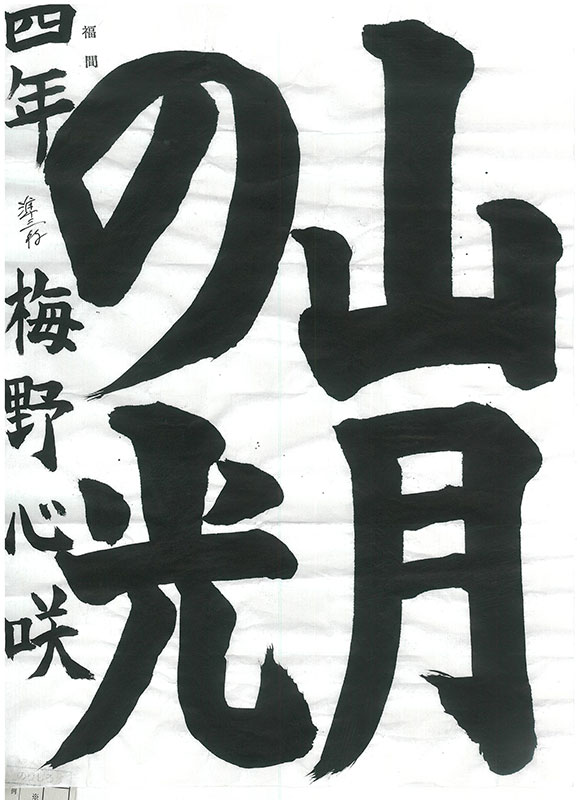 山月
の光
福間
四年 準三段 梅野心咲